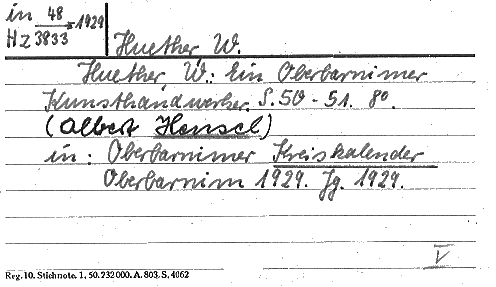 in 48 = 1929
HZ 3833
Huether W.
Huether, W.: Ein Oberbarnimer
Kunsthandwerker. S. 50 - 51. 8°.
(Albert Hensel)
in: Oberbarnimer Kreiskalender
Oberbarnim 1929. Jg. 1929.
V
Reg. 10. Stichnote. 1, 50. 232000. A. 803. S. 4062